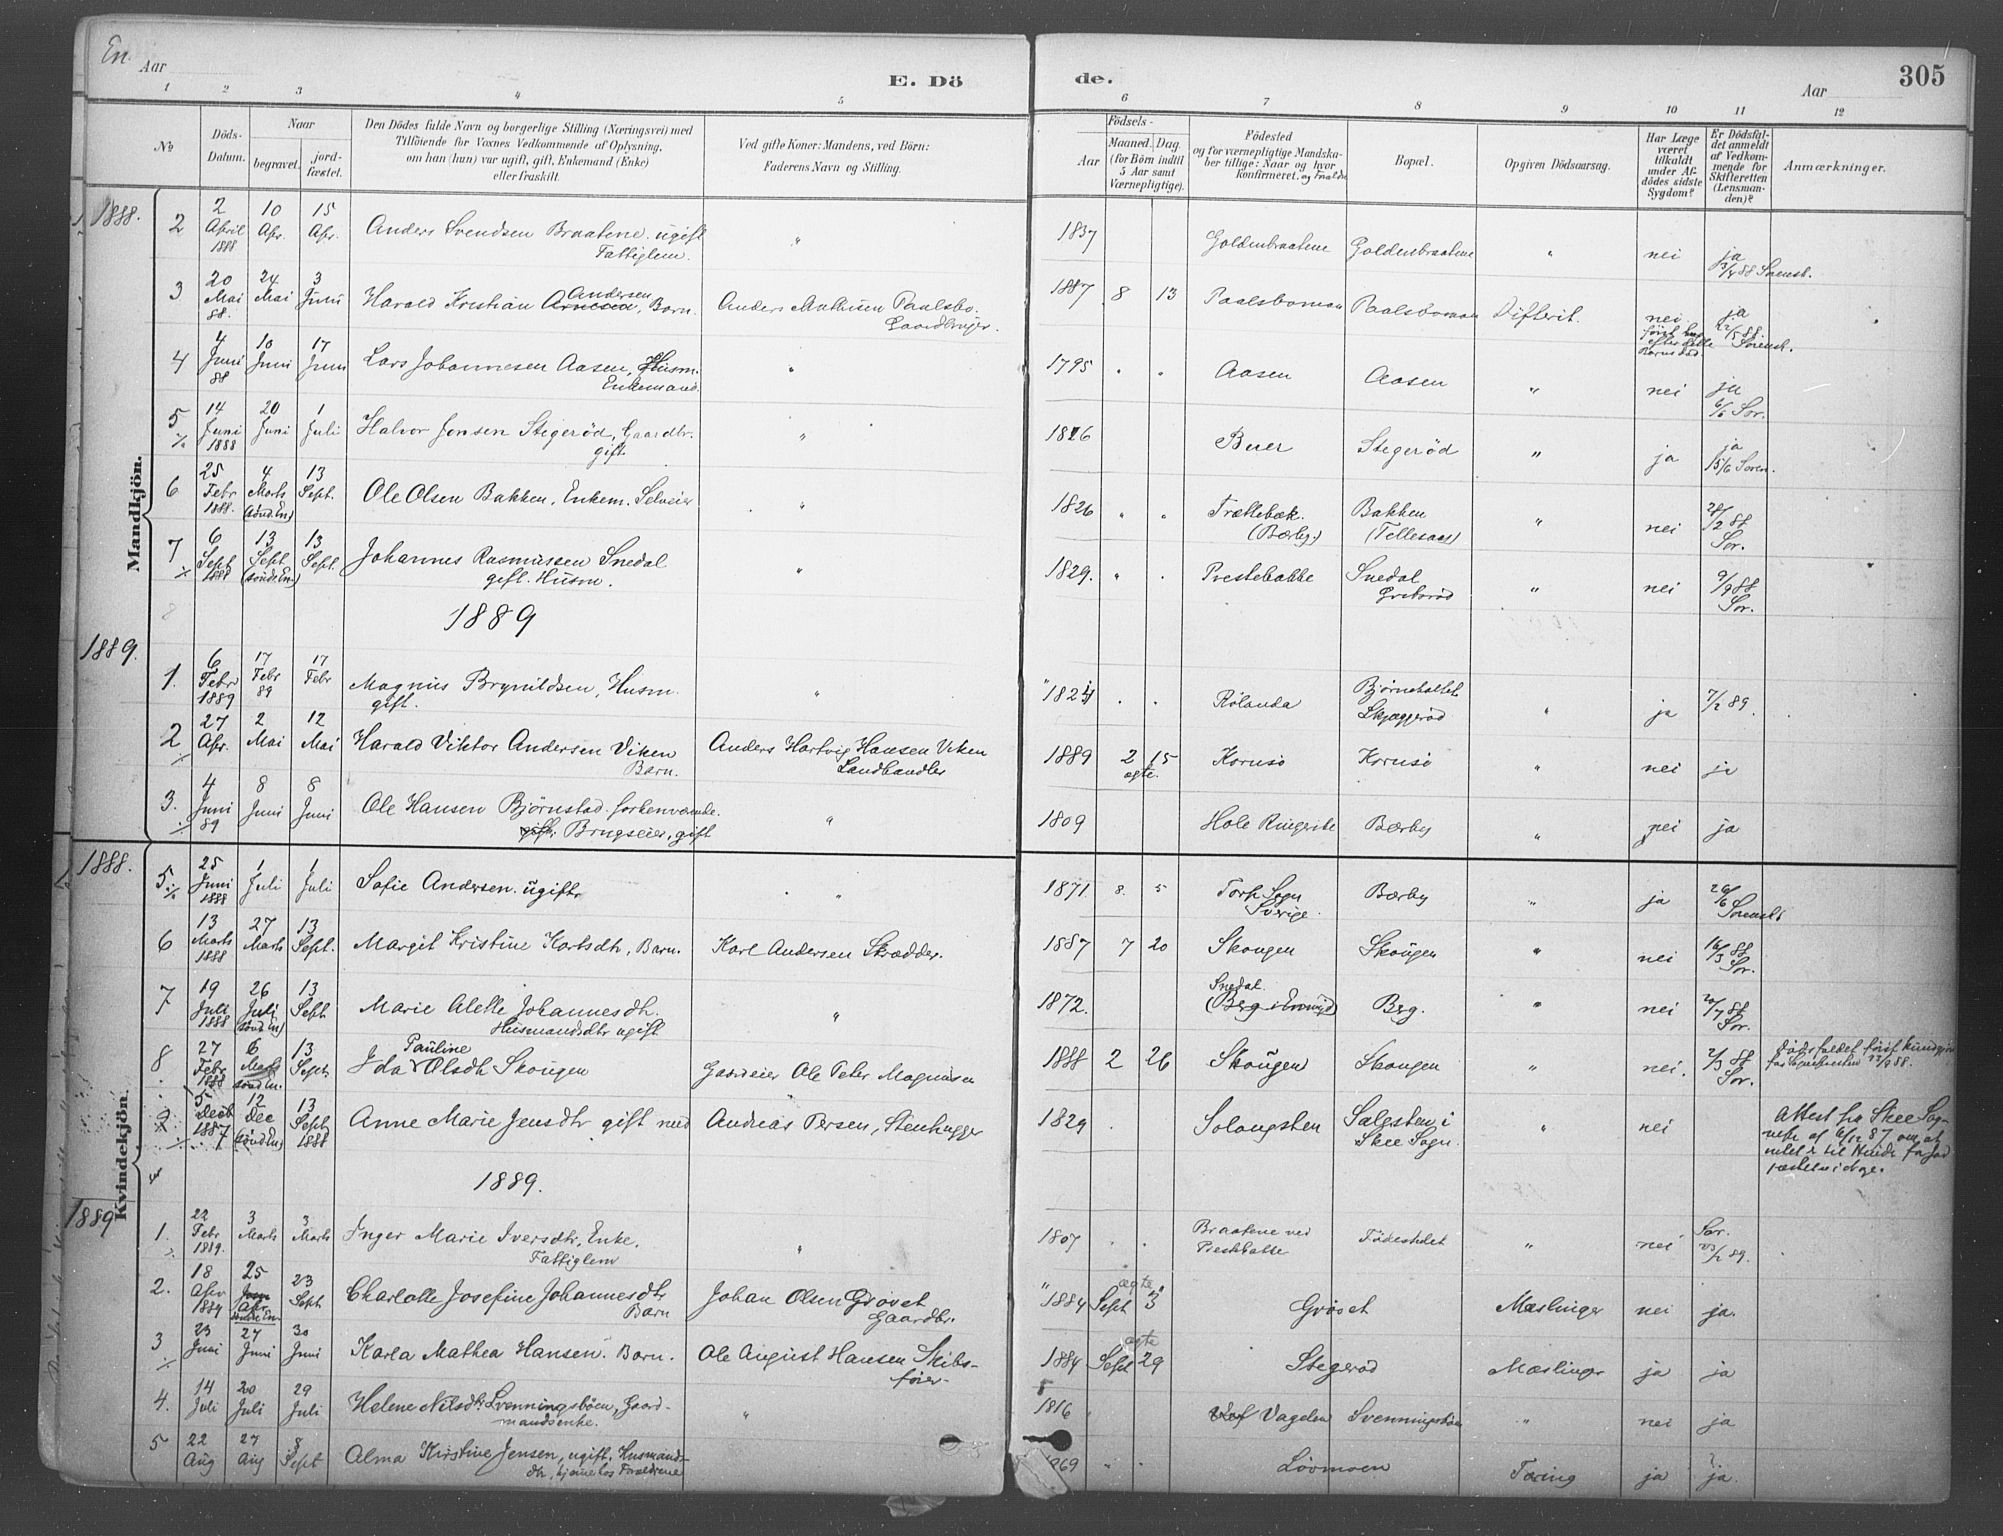 En
Aar
E. Dö
de.
Aar
305
1 2 3 4 5 6 7 8 9 10 11 12
№
Döds-
Datum.
Naar
begravet.
jord-
fæstet.
Den Dödes fulde Navn og borgerlige Stilling (Næringsvei) med
Tilföiende for Voxnes Vedkommende af Oplysning,
om han (hun) var ugift, gift, Enkemand (Enke)
eller fraskilt.
Ved gifte Koner: Mandens, ved Börn:
Faderens Navn og Stilling.
Födsels-
Aar
Maaned. Dag.
(for Börn indtil
5 Aar samt
Værnepligtige).
Födested
og for værnepligtige Mandska-
ber tillige: Naar og hvor
Konfirmeret.
Bopæl.
Opgiven Dödsaarsag.
Har Læge
været
tilkaldt
under Af-
dödes sidste
Sygdom?
Er Dödsfal-
det anmeldt
af Vedkom-
mende for
Skifteretten
(Lensman-
den)?
Anmærkninger.
Mandkjön.
1888.
2 2 April 1888 10 Apr. 15 Apr. Anders Svendsen Braatene ugift Fattiglem. " 1837 Goldenbraatene Goldenbraatene " nei ja 3/4 88 Sorensk.
3 20 Mai 88. 24 Mai 3 Juni Harald Kristian Andersen, Barn. Anders Mathisen Paalsbo. Gaardbruger. 1887 8 13 Paalsbomoen Paalsbomoen Difterit. nei. først efter dette Barns Død ja 22/5 88. Sorensk.
4 4 Juni 88 10 Juni 17 Juni Lars Johannesen Aasen, Husm. Enkemand. " 1795 " " Aasen Aasen " nei ja 6/6 Sor.
5 14 Juni 1888 20 Juni 1 Juli Halvor Jensen Stegerød, Gaardbr. gift. " 1826 Buer Stegerød " ja ja 15/6 Soren.
6 25 Febr 1888. 4 Marts (sønd. En) 13 Sept. Ole Olsen Bakken, Enkem. Selveier " 1826 " " Trættebæk. (Bærby.) Bakken (Tellesaas) " nei 28/2 88 Sor.
7 6 Sept 1888 13 Sept (sønd. En) 13 Sept. Johannes Rasmussen Snedal gift. Husm. " 1829. " . Prestebakke Snedal " nei 9/9 88 Sor.
8
1889
1889.
1. 6 Febr 1889 17 Febr 89 17 Febr Magnus Brynildsen, Husm. gift. " " . . Rølanda Bjørneholtet Skjeggerød " ja 7/2 89.
2 27 Apr. 2 Mai 12 Mai Harald Viktor Andersen Viken Barn. Anders Hartvig Hansen Viken Landhandler 1889 2 15 ægte. Kornsø Kornsø " nei ja
3. 4 Juni 89 8 Juni 8 Juni Ole Hansen Bjørnstad forhenværende. gift. Brugseier, gift " 1809 Hole Ringerike Bærby " nei ja
Kvindekjön.
1888.
5 25 Juni 1888 1 Juli 1 Juli Sofie Andersen. ugift " 1871 8. 5 Torp Sogn Sverige. Bærby " ja 26/6 Sorensk.
6 13 Marts 1888 27 Marts 13 Sept. Margit Kristine Karlsdtr, Barn. Karl Andersen Skrædder. 1887 7 20 Skougen Skougen " nei 16/3 88 Sor.
7 19 Juli 1888 26 Juli (sønd. En) 13 Sept Marie Alette Johannesdtr. Husmandsdtr ugift " 1872. Snedal. (Berg i Enning) Berg. " nei 20/7 88 Sor.
8 27 Febr 1888 6 Marts sønd. En. 13 Sept Ida Pauline Olsdtr Skougen Gaardeier Ole Peter Magnusen 1888 2 26 Skougen Skougen " nei. 2/3 88 Sor. Dødsfaldet først
9 5 Decb 1887 12 Dec (sønd. En) 13 Sept 1888 Anne Marie Jensdtr gift med Andreas Persen, Stenhugger 1829 . Solangsten Salgsten i Skee Sogn. " nei Attest fra Skee Sog- nepr. af 6/12 87 om at intet er til Hinder for Jord fæstelse
1889.
1889
1. 22 Febr 1889. 3 Marts 3 Marts Inger Marie Iversdtr, Enke, Fattiglem " 1807 . . Braatene ved Prestbakke Fødestedet " nei Sor. 89.
2. 18 Apr 25 Apr. sønd. En. 23 Sept Charlotte Josefine Johannesdtr Barn Johan Olsen Grøvet Gaardbr. 1884 Sept ægte 3 Grøvet Mæslinger nei ja.
3 23 Juni 27 Juni 30 Juni Karla Mathea Hansen. Barn. Ole August Hansen Skibs- fører. 1884 Sept ægte 29 Stegerød Mæslinger ja ja
4. 14 Juli 20 Juli 29 Juli Helene Nilsdtr Svenningsbøen, Gaard- mandsenke. " 1816 Vagelen Svenningsbøen " nei ja
5 22 Aug 27 Aug 8 Sept Alma Kirstine Jensen, ugift. Husmands- dtr, hjemme hos Forældrene 1869 " " Løvmoen Tæring ja ja.